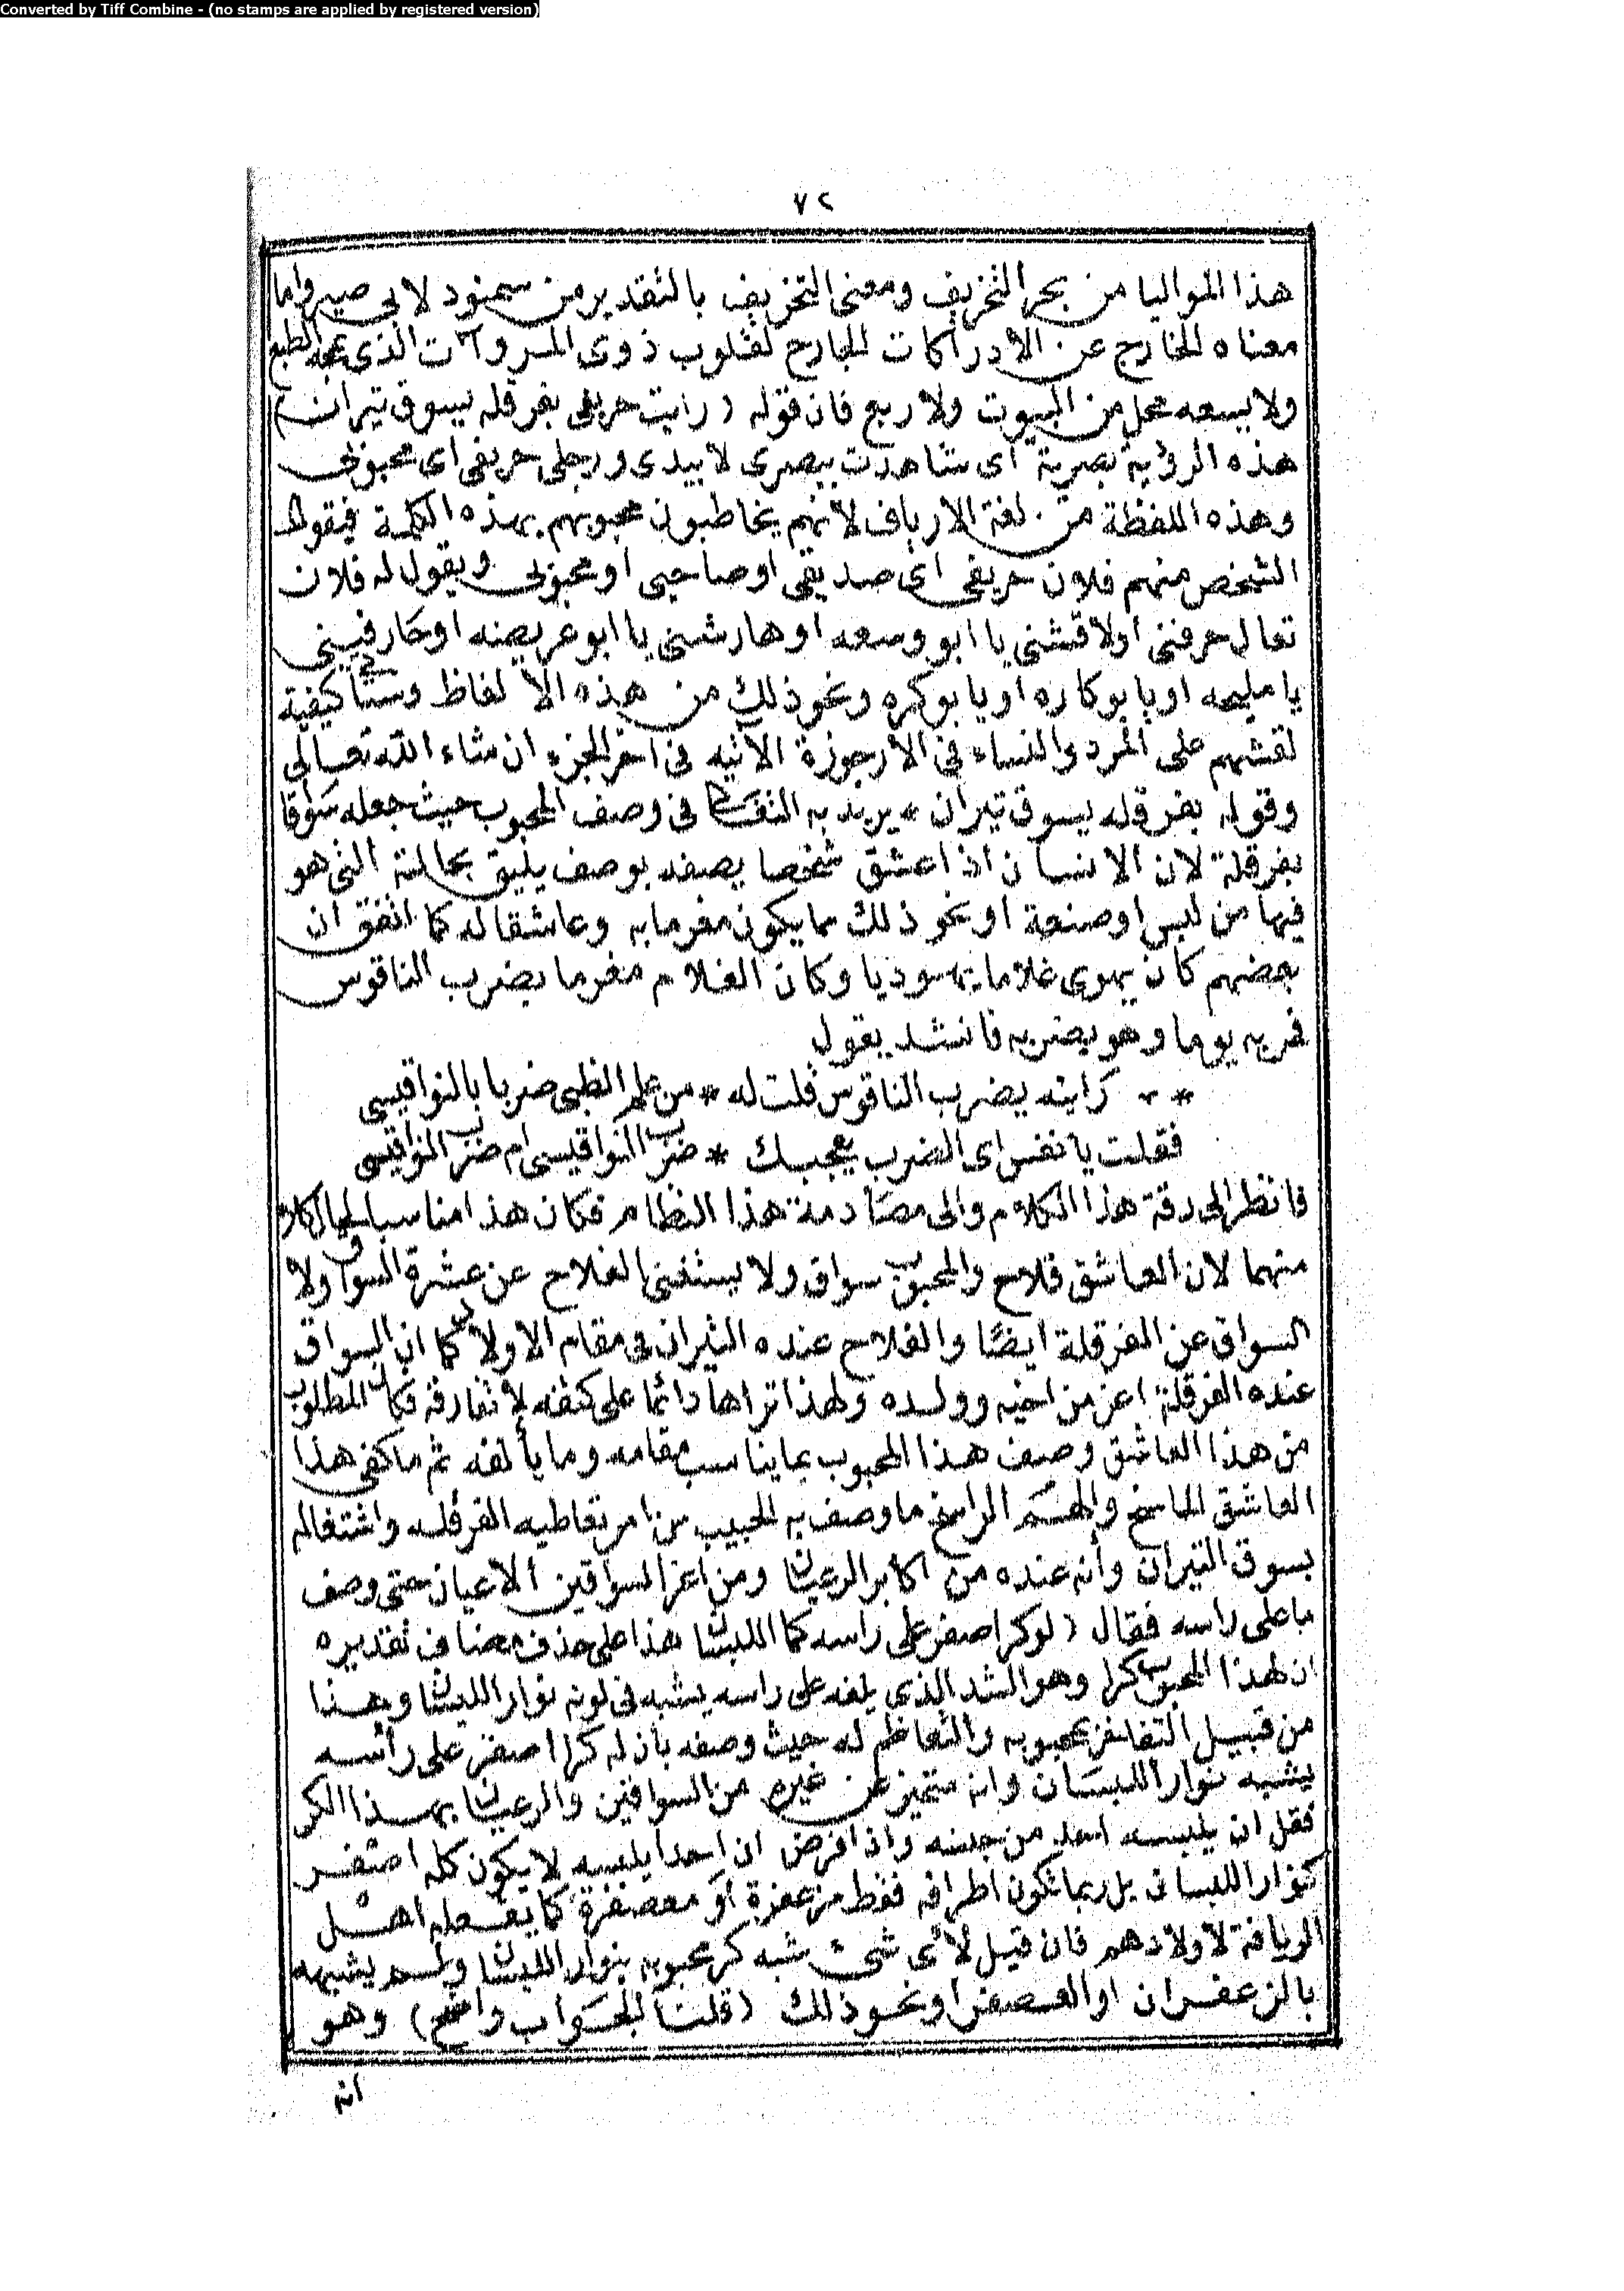 Converted by Tiff Combine - (no stamps are applied by registered version)
٧٢
هذا المواليا من بحر التخريف ومعنى التخريف بالتقدير من سمنود لابى صير واما
معناه الخارج عن الادراكات الجارح لقلوب ذوى المروآت الذى يمجه الطبع
ولا يسعه محل من البيوت ولا ربع فان قوله (رايت حريفى بفرقله يسوق تيران)
هذه الرؤية بصرية اى شاهدت ببصرى لا بيدى ورجلى حريفى اى محبوبى
وهذه اللفظة من لغة الارياف لانهم يخاطبون محبوبهم بهذه الكلمة فيقول
الشخص منهم فلان حريفى اى صديقى او صاحبى او محبوبى ويقول له فلان
تعال حرفنى اولاقشنى يا ابو وسعه او هارشنى يا ابو عريضه او حارفينى
يا مليحه او يا بوكاره او يا بوكره ونحو ذلك من هذه الالفاظ وستاتى كيفية
لقشهم على المرد والنساء فى الارجوزة الآتيه فى اخر الجزء ان شاء الله تعالى
وقوله بفرقله يسوق تيران * يريد به فى وصف المحبوب حيث جعله سواقا
بفرقلة لان الانسان اذا عشق شخصا يصفه بوصف يليق بحالته التى هو
فيها من لبس او صنعة او نحو ذلك مما يكون مغرما به وعاشقا له كما اتفق ان
بعضهم كان يهوى غلاما يهوديا وكان الغلام مغرما بضرب الناقوس
فمر به يوما وهو يضربه فانشد يقول
** رايته يضرب الناقوس قلت له * من علم الظبى ضربا بالنواقيسى
فقلت يا نفس اى الضرب يعجبك * ضرب النواقيسى ام ضرب النواقيسى
فانظر الى دقة هذا الكلام والى مصادمة هذا النظام فكان هذا مناسبا لحال كلا
منهما لان العاشق فلاح والمحبوب سواق ولا يستغنى الفلاح عن عشرة السواق ولا
السواق عن الفرقلة ايضًا والفلاح عنده الثيران فى مقام الاولاد كما ان السواق
عنده الفرقلة اعز من اخيه وولده ولهذا تراها دائما على كتفه لا تفارقه فكان المطلوب
من هذا العاشق وصف هذا المحبوب بما يناسب مقامه وما يألفه ثم ما كفى هذا
العاشق الماسخ والهم الراسخ ما وصف به الحبيب من امر تعاطيه الفرقله واشتغاله
بسوق التيران وأنه عنده من اكابر الرعيان ومن اعز السواقين الاعيان حتى وصف
ما على راسه فقال (لو كر اصفر على راسه كما اللبسان هذا على حذف مضاف تقديره
ان لهذا المحبوب كرا وهو الشد الذي يلفه على راسه يشبه فى لونه نوار اللبسان وهذا
من قبيل التفاخر بمحبوبه والتعاظم له حيث وصفه بأن له كرا اصفر على رأسه
يشبه نوار اللبسان وانه متميز عن غيره من السواقين والرعيان بهذا الكر
فقل ان يلبسه احد من جنسه واذا فرض ان احدا يلبسه لا يكون كله اصفر
كنوار اللبسان بل ربما تكون اطرافه فقط مزعفرة أو معصفرة كما يفعله اهل
الريافة لاولادهم فان قيل لأى شئ شبه كر محبوبه بنوار اللبسان ولم يشبهه
بالزعفران او العصفر او نحو ذلك (قلنا الجواب واضح) وهو
انه